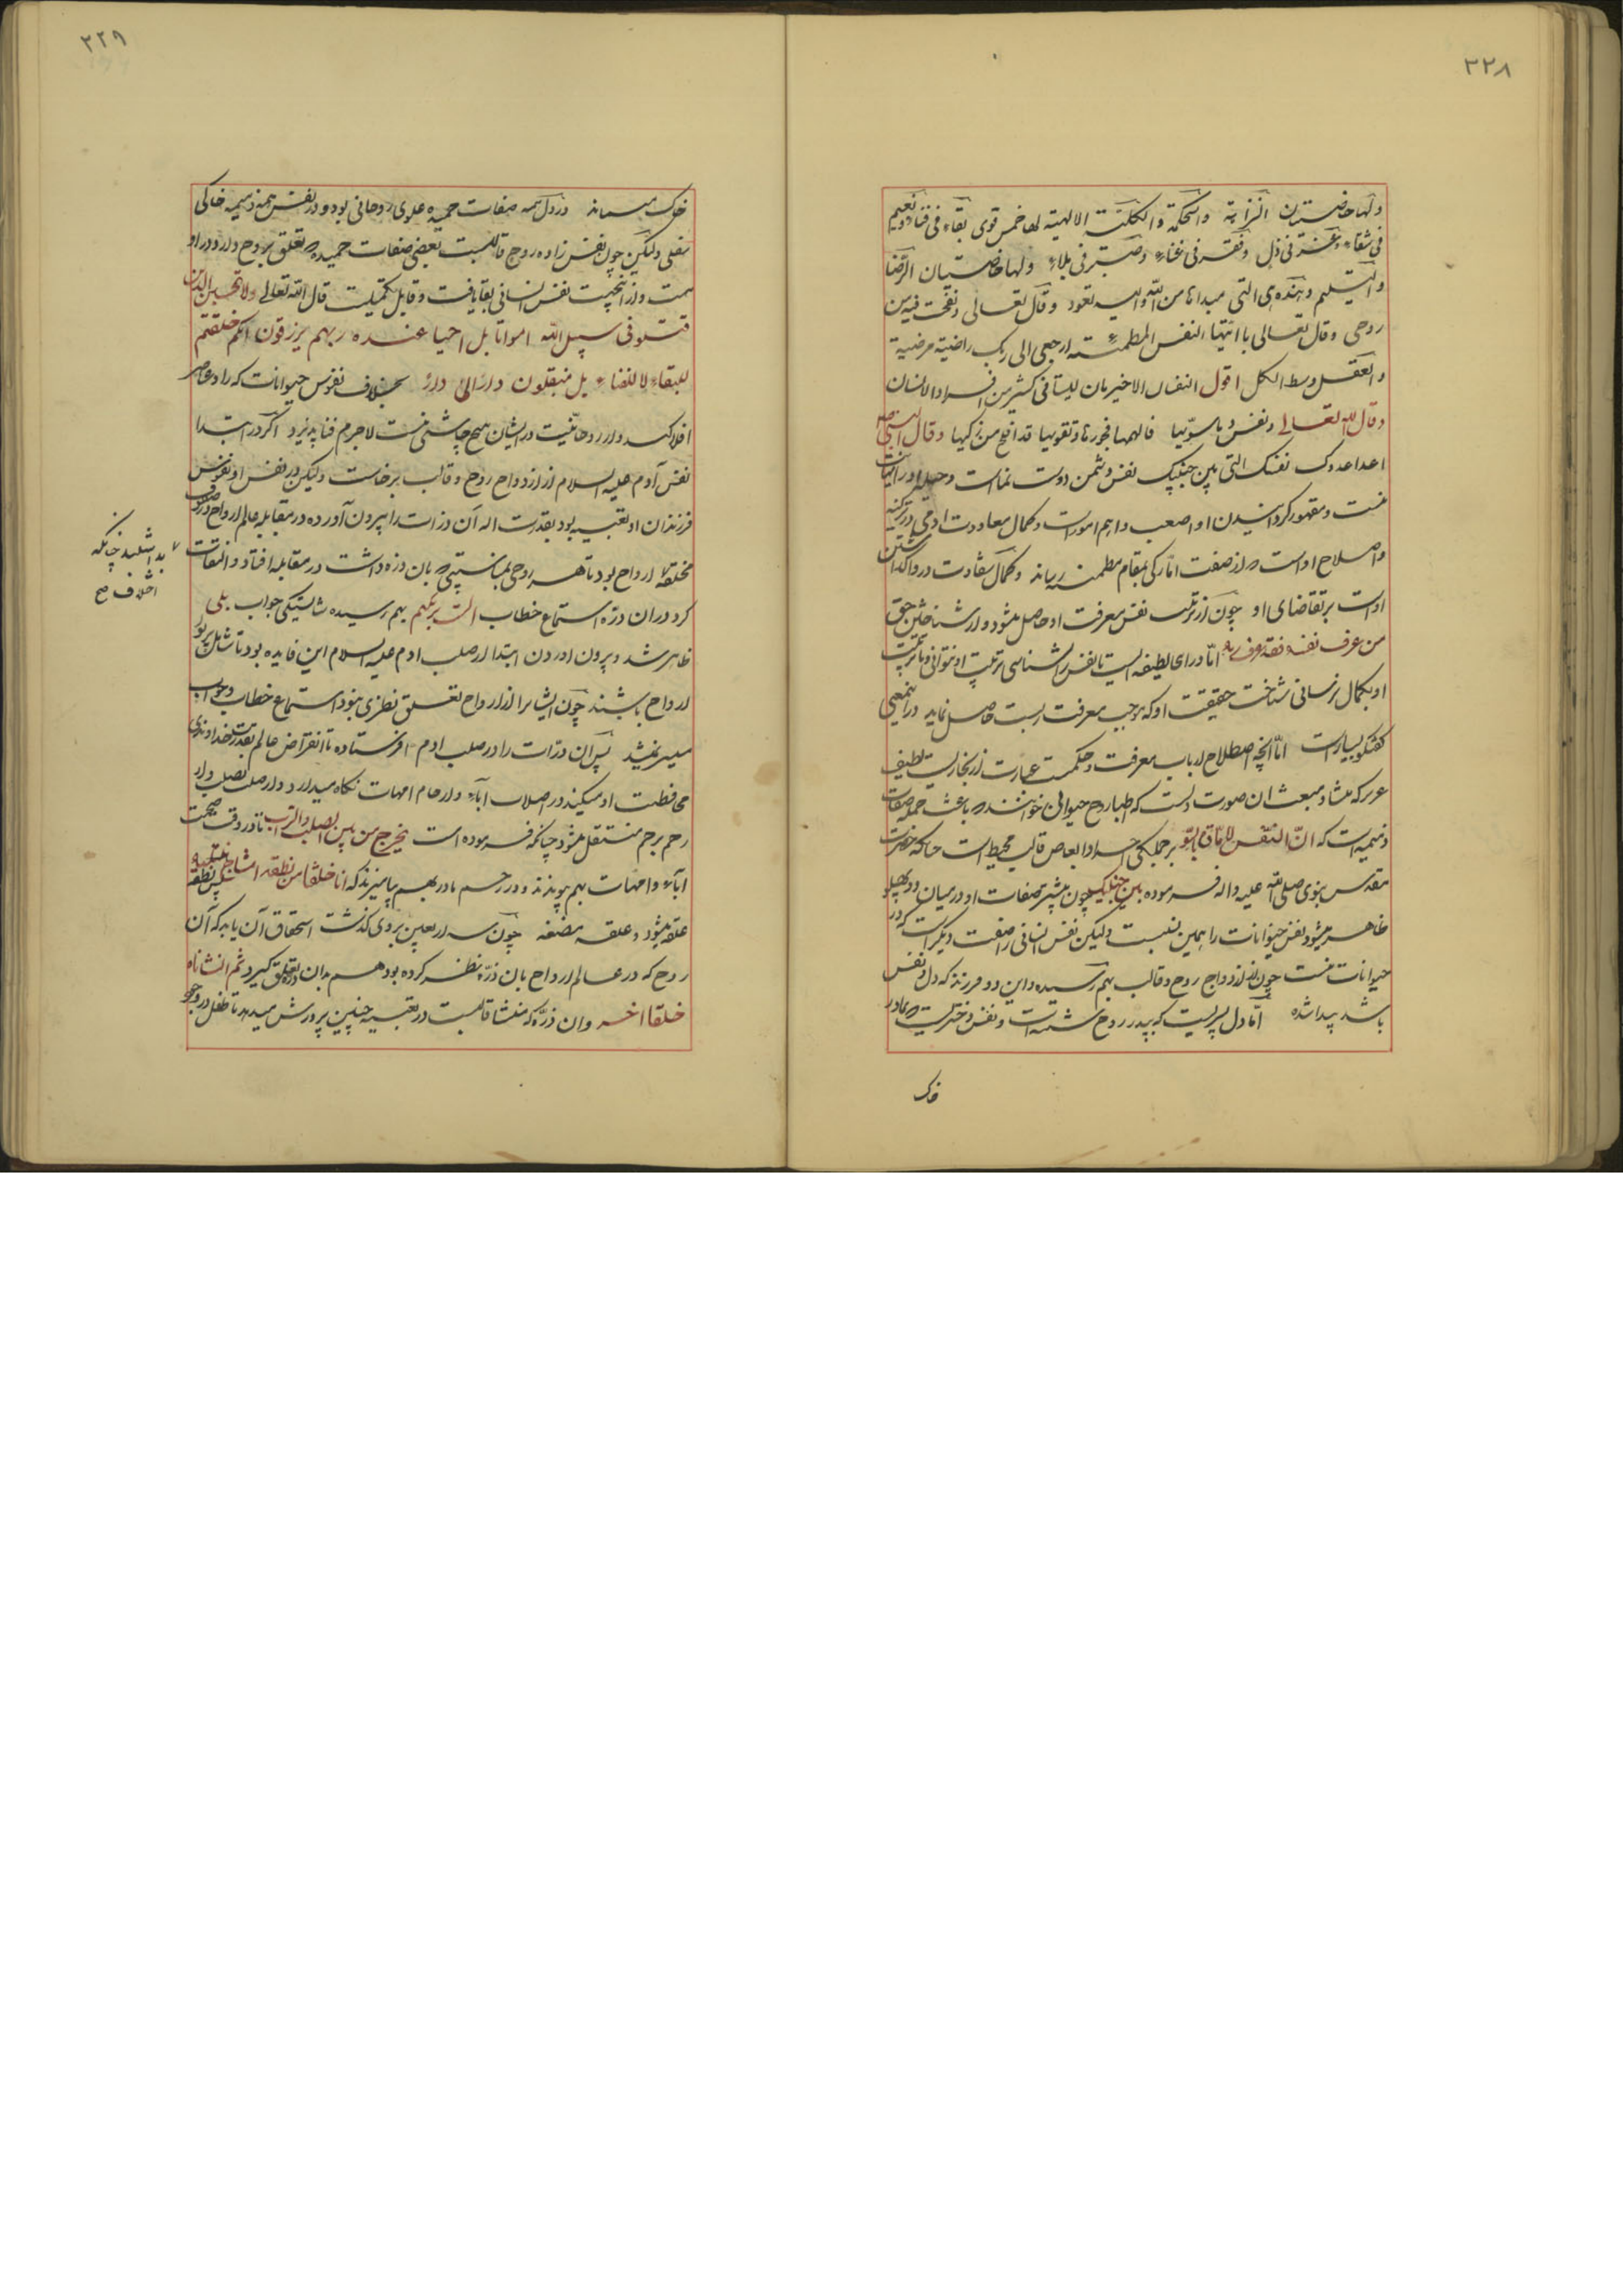 ۲۲۸
ولها خاصیتان النزاهة والحکمة والکلیة الالهیة لها خمس قوی بقاء فی فناء ونعیم
فی شقاء وعز فی ذل وفقر فی غناء وصبر فی بلاء ولها خاصیتان الرضا
والتسلیم وهذه هی التی مبداها من الله والیه تعود وقال تعالی ونفخت فیه من
روحی وقال تعالی یا ایتها النفس المطمئنه ارجعی الی ربک راضیة مرضیة
والعقل وسط الکل اقول النفسان الاخیرتان لیستا فی کثیر من افراد الانسان
وقال الله تعالی ونفس وما سویها فالهمها فجورها وتقویها قد افلح من زکیها وقال النبی ص
اعدا عدوک نفسک التی بین جنبیک نفس دشمن دوست نماست و حیله او را نهایت
نیست و مقهور گردانیدن او اصعب و اهم امور است و کمال سعادت ادمی در تزکیه
و اصلاح اوست و از صفت امارکی بمقام مطمئنه رساند و کمال شقاوت در واگذاشتن
اوست بر تقاضای او چون از تربیت نفس معرفت او حاصل میشود و از شناختن حق
من عرف نفسه فقد عرف ربه اما درای لطیفه ایست تا نفس را نشناسی تربیت او نتوانی و تا تربیت
او بکمال نرسانی شناخت حقیقت او که موجب معرفت ربست حاصل نماید در این معنی
گفتگو بسیار است اما آنچه اصطلاح ارباب معرفت و حکمت عبارت از بخاریست لطیف
که منشاء و مبعث ان صورت دلست که اطبا روح حیوانی خوانند و باعث جمله صفات
ذمیمه است که ان النفس لامارة بالسو بر جملگی اجزا و ابعاض قالب محیط است چنانکه حضرت
مقدس نبوی صلی الله علیه واله فرموده بین جنبیک چون بیشتر صفات او در میان دو پهلو
ظاهر میشود نفس حیوانات را همین نسبت ولیکن نفس انسانی را صفت دیگر است که در
حیوانات نیست چون از ازدواج روح و قالب بهم رسیده و این دو فرزند که دل و نفس
باشد پیدا شده اما دل پسریست که بپدر روح شبیه است و نفس دختریست که بمادر
خاک
۲۲۹
خاک میماند در دل همه صفات حمیده علوی روحانی بود و در نفس همه ذمیمه خاکی
سفلی ولیکن چون نفس زاده روح قالبست بعضی صفات حمیده که تعلق بروح دارد در او
هست و از اینجهت نفس انسانی بقا یافت و قابل تکمیلست قال الله تعالی ولا تحسبن الذین
قتلوا فی سبیل الله امواتا بل احیا عنده ربهم یرزقون انکم خلقتم
للبقاء لا للفناء بل منتقلون دار الی دار بخلاف نفوس حیوانات که زاده عناصر
افلاکند و از روحانیت در ایشان هیچ چاشنی نیست لاجرم فنا پذیرد اگر در ابتدا
نفس آدم علیه السلام از ازدواج روح و قالب برخاست ولیکن در نفس او نفوس
فرزندان او تعبیه بود بقدرت اله آن ذرات را بیرون آورده در مقابله عالم ارواح در صفوف
مختلفه ارواح بود تا هر روحی بمناسبتی که بان ذره داشت در مقابله افتاد و التفات
بداشتند چنانکه اختلاف صح
کرد در ان ذره استماع خطاب الست بربکم بهم رسیده شایستگی جواب بلی
ظاهر شد و بیرون اوردن ابتدا از صلب ادم علیه السلام این فایده بود تا شایان پرتو
ارواح باشند چون ایشانرا از ارواح تعلق نظری نبود استماع خطاب و جواب
میسر نمیشد پس آن ذرات را در صلب ادم فرستاده تا انقراض عالم بقدرت خداوندی
محافظت او میکند در اصلاب آباء و ارحام امهات نگاه میدارد و از صلب بصلب و از
رحم برحم منتقل میشود چنانکه فرموده است یخرج من بین الصلب والترائب تا در وقت صحبت
آباء و امهات بهم پیوندند و در رحم مادر بهم بیامیزند که انا خلقنا من نطفه امشاج نبتلیه پس نطفه
علقه میشود و علقه مضغه چون سه اربعین بر وی گذشت استحقاق آن یابد که آن
روح که در عالم ارواح بان ذره نظر کرده بود هم بدان ذره تعلق گیرد ثم انشاناه
خلقا اخر و ان ذره که منشا قالبست در تعبیه چنین پرورش میدهد تا طفل در وجود